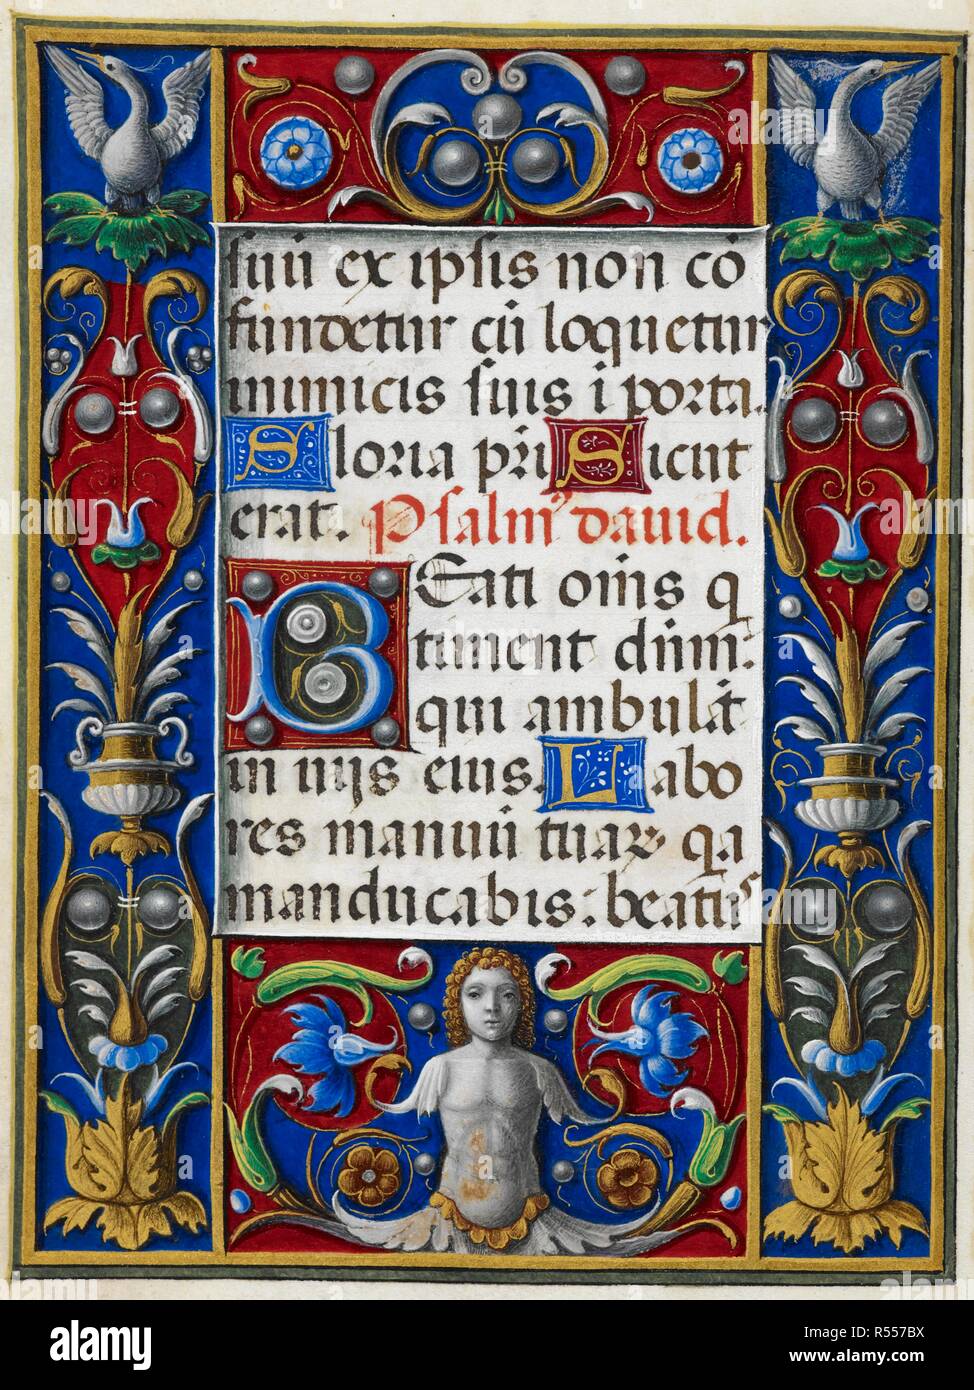 suu ex ipsis non cō
fundetur cū loquetur
inimicis suis i porta.
Gloria pr̄i Sicut
erat. Psalmꝰ dauid.
BEati om̄s q
timent dūm.
qui ambulāt
in uijs eius. Labo
res manuū tuaꝝ qa
manducabis: beatꝰ
alamy
Image ID: R557BX
www.alamy.com